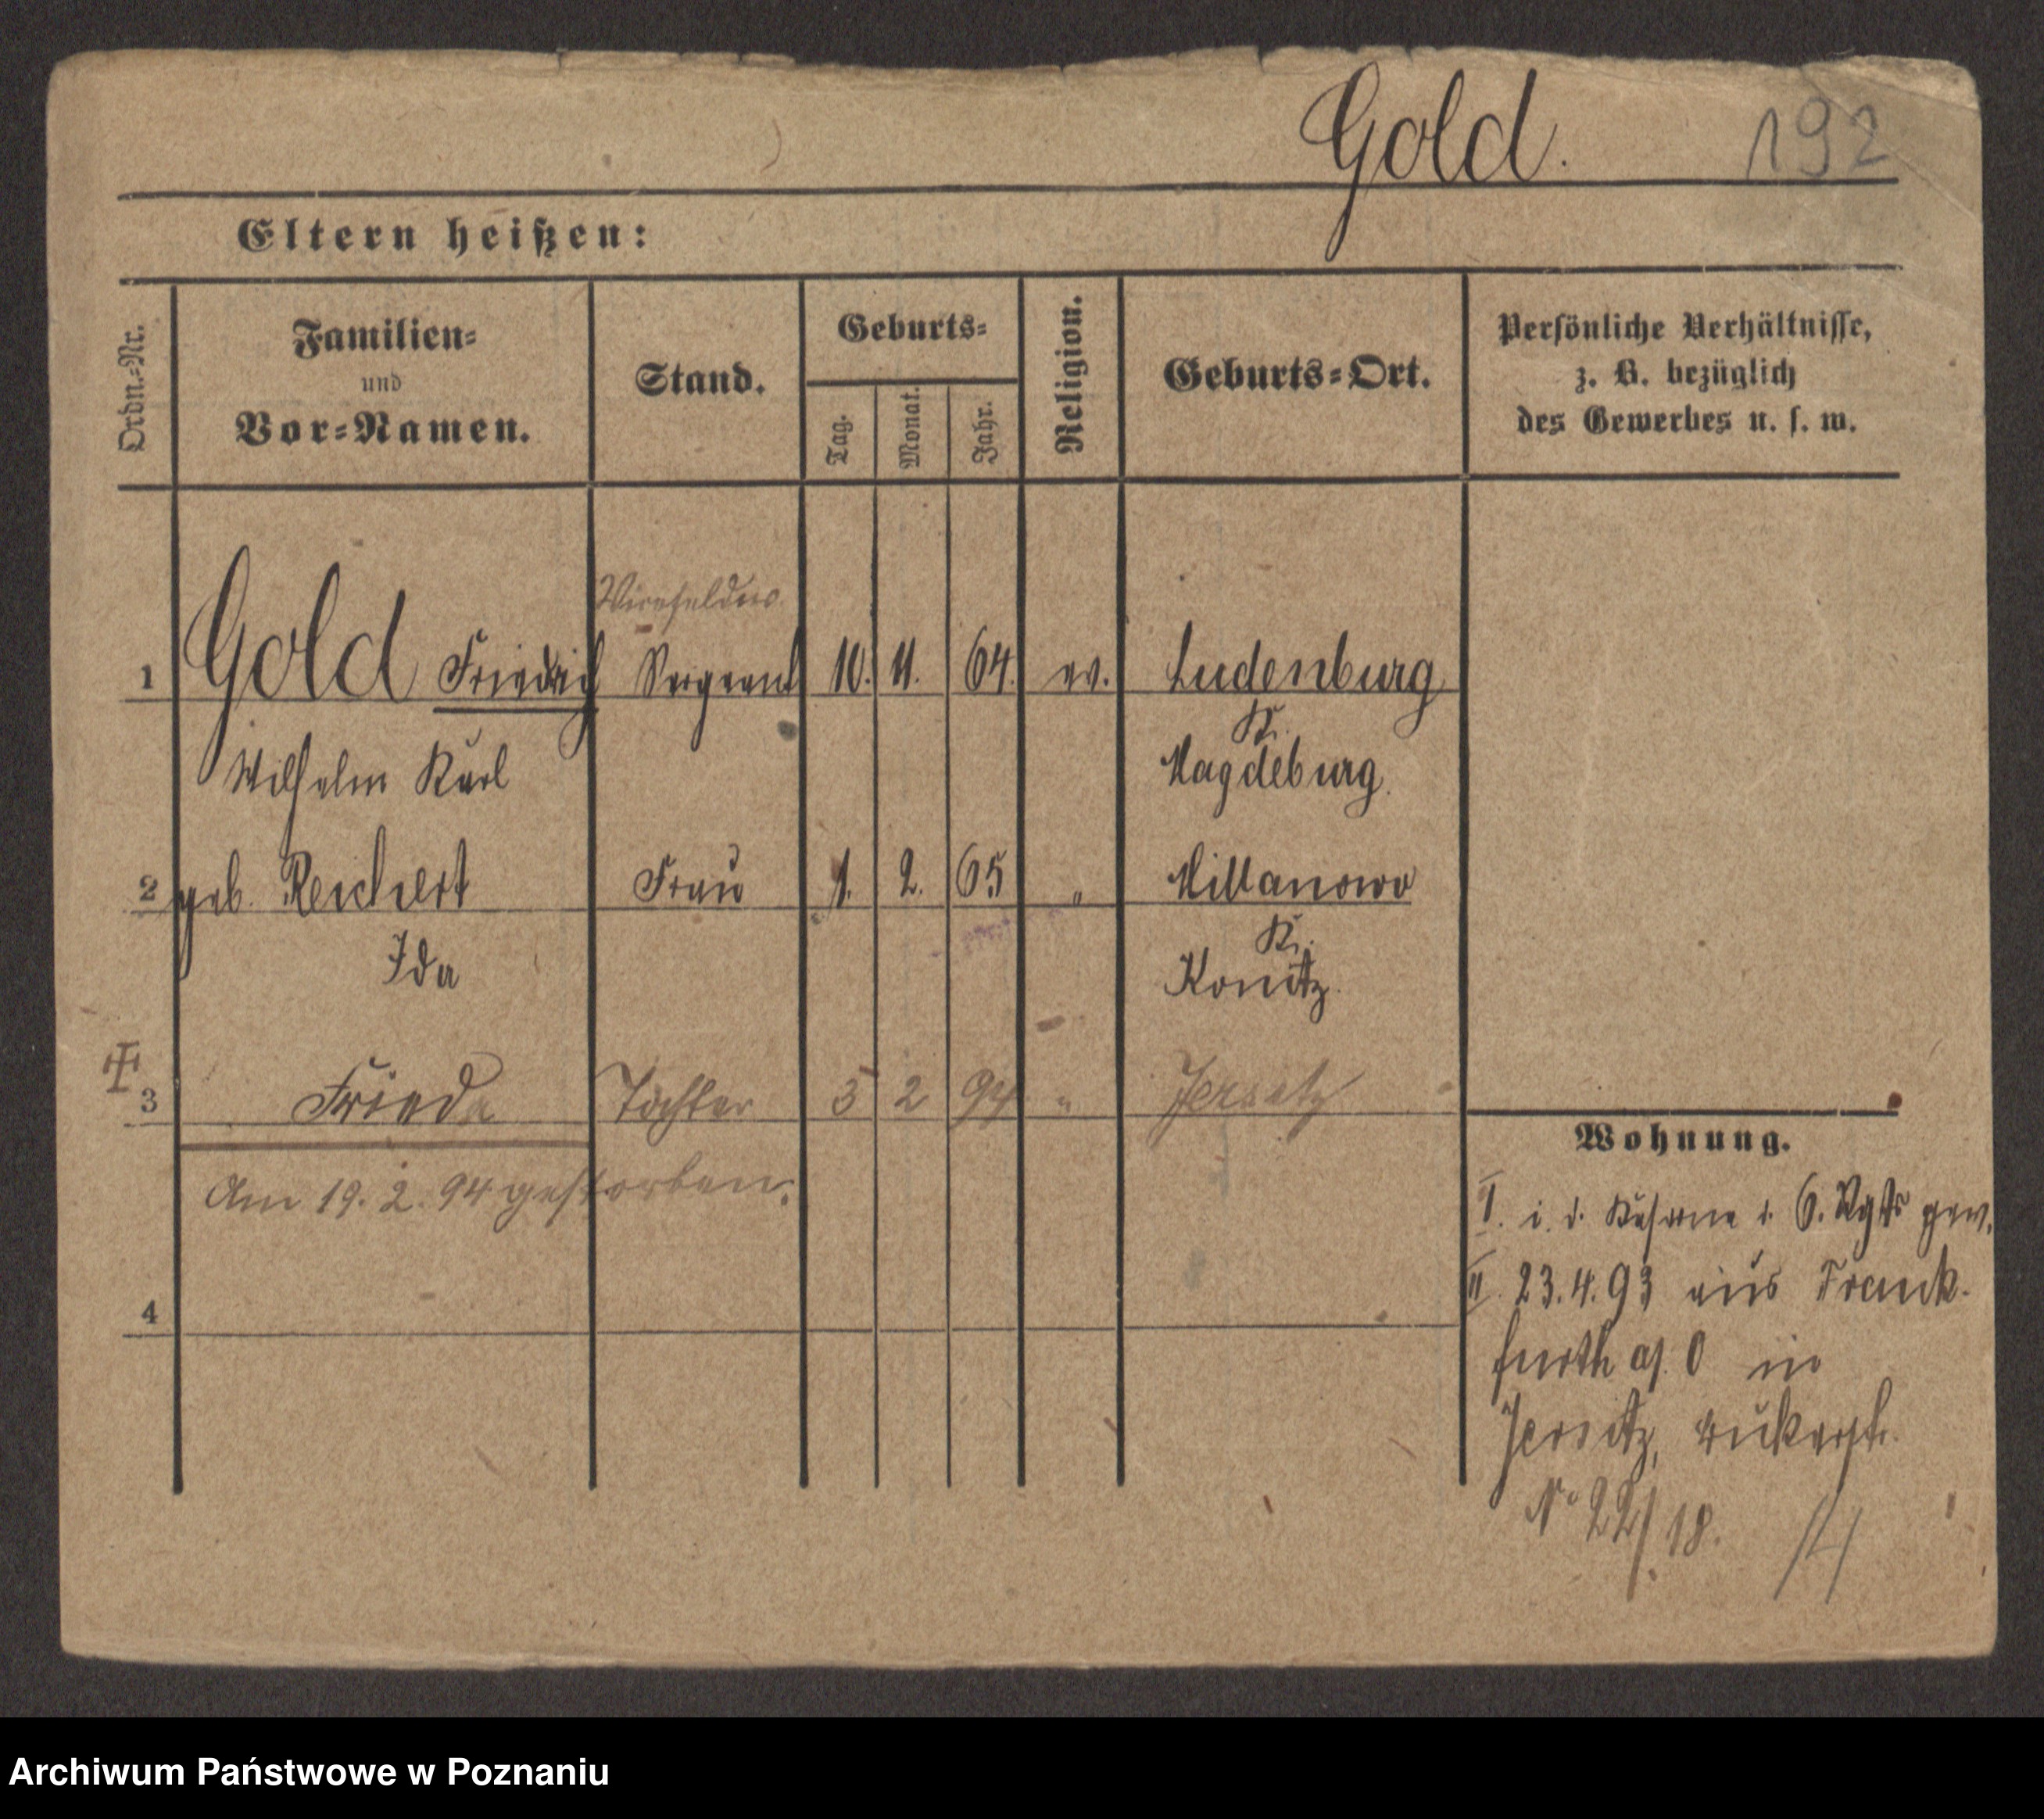 Gold. 192
Eltern heißen:
Ordn.-Nr.
Familien-
und
Vor-Namen.
Stand.
Geburts-
Tag.
Monat.
Jahr.
Religion.
Geburts-Ort.
Persönliche Verhältnisse,
z. B. bezüglich
des Gewerbes u. s. w.
1 Gold Friedrich Sergeant 10. 11. 64. ev. Ludenburg
Wilhelm Karl
Kr.
Magdeburg.
2 geb. Reichert Frau 1. 2. 65 " Millanowo
Ida
Kr.
Konitz.
3 Frieda Tochter 5 2 94 " Jersitz
Am 19. 2. 94 gestorben.
4
Wohnung.
I. i. d. Kaserne d. 6. Rgts gew.
II. 23.4.93 aus Frank-
furth a/. O in
Jersitz,
No 22/18. 14
Archiwum Państwowe w Poznaniu